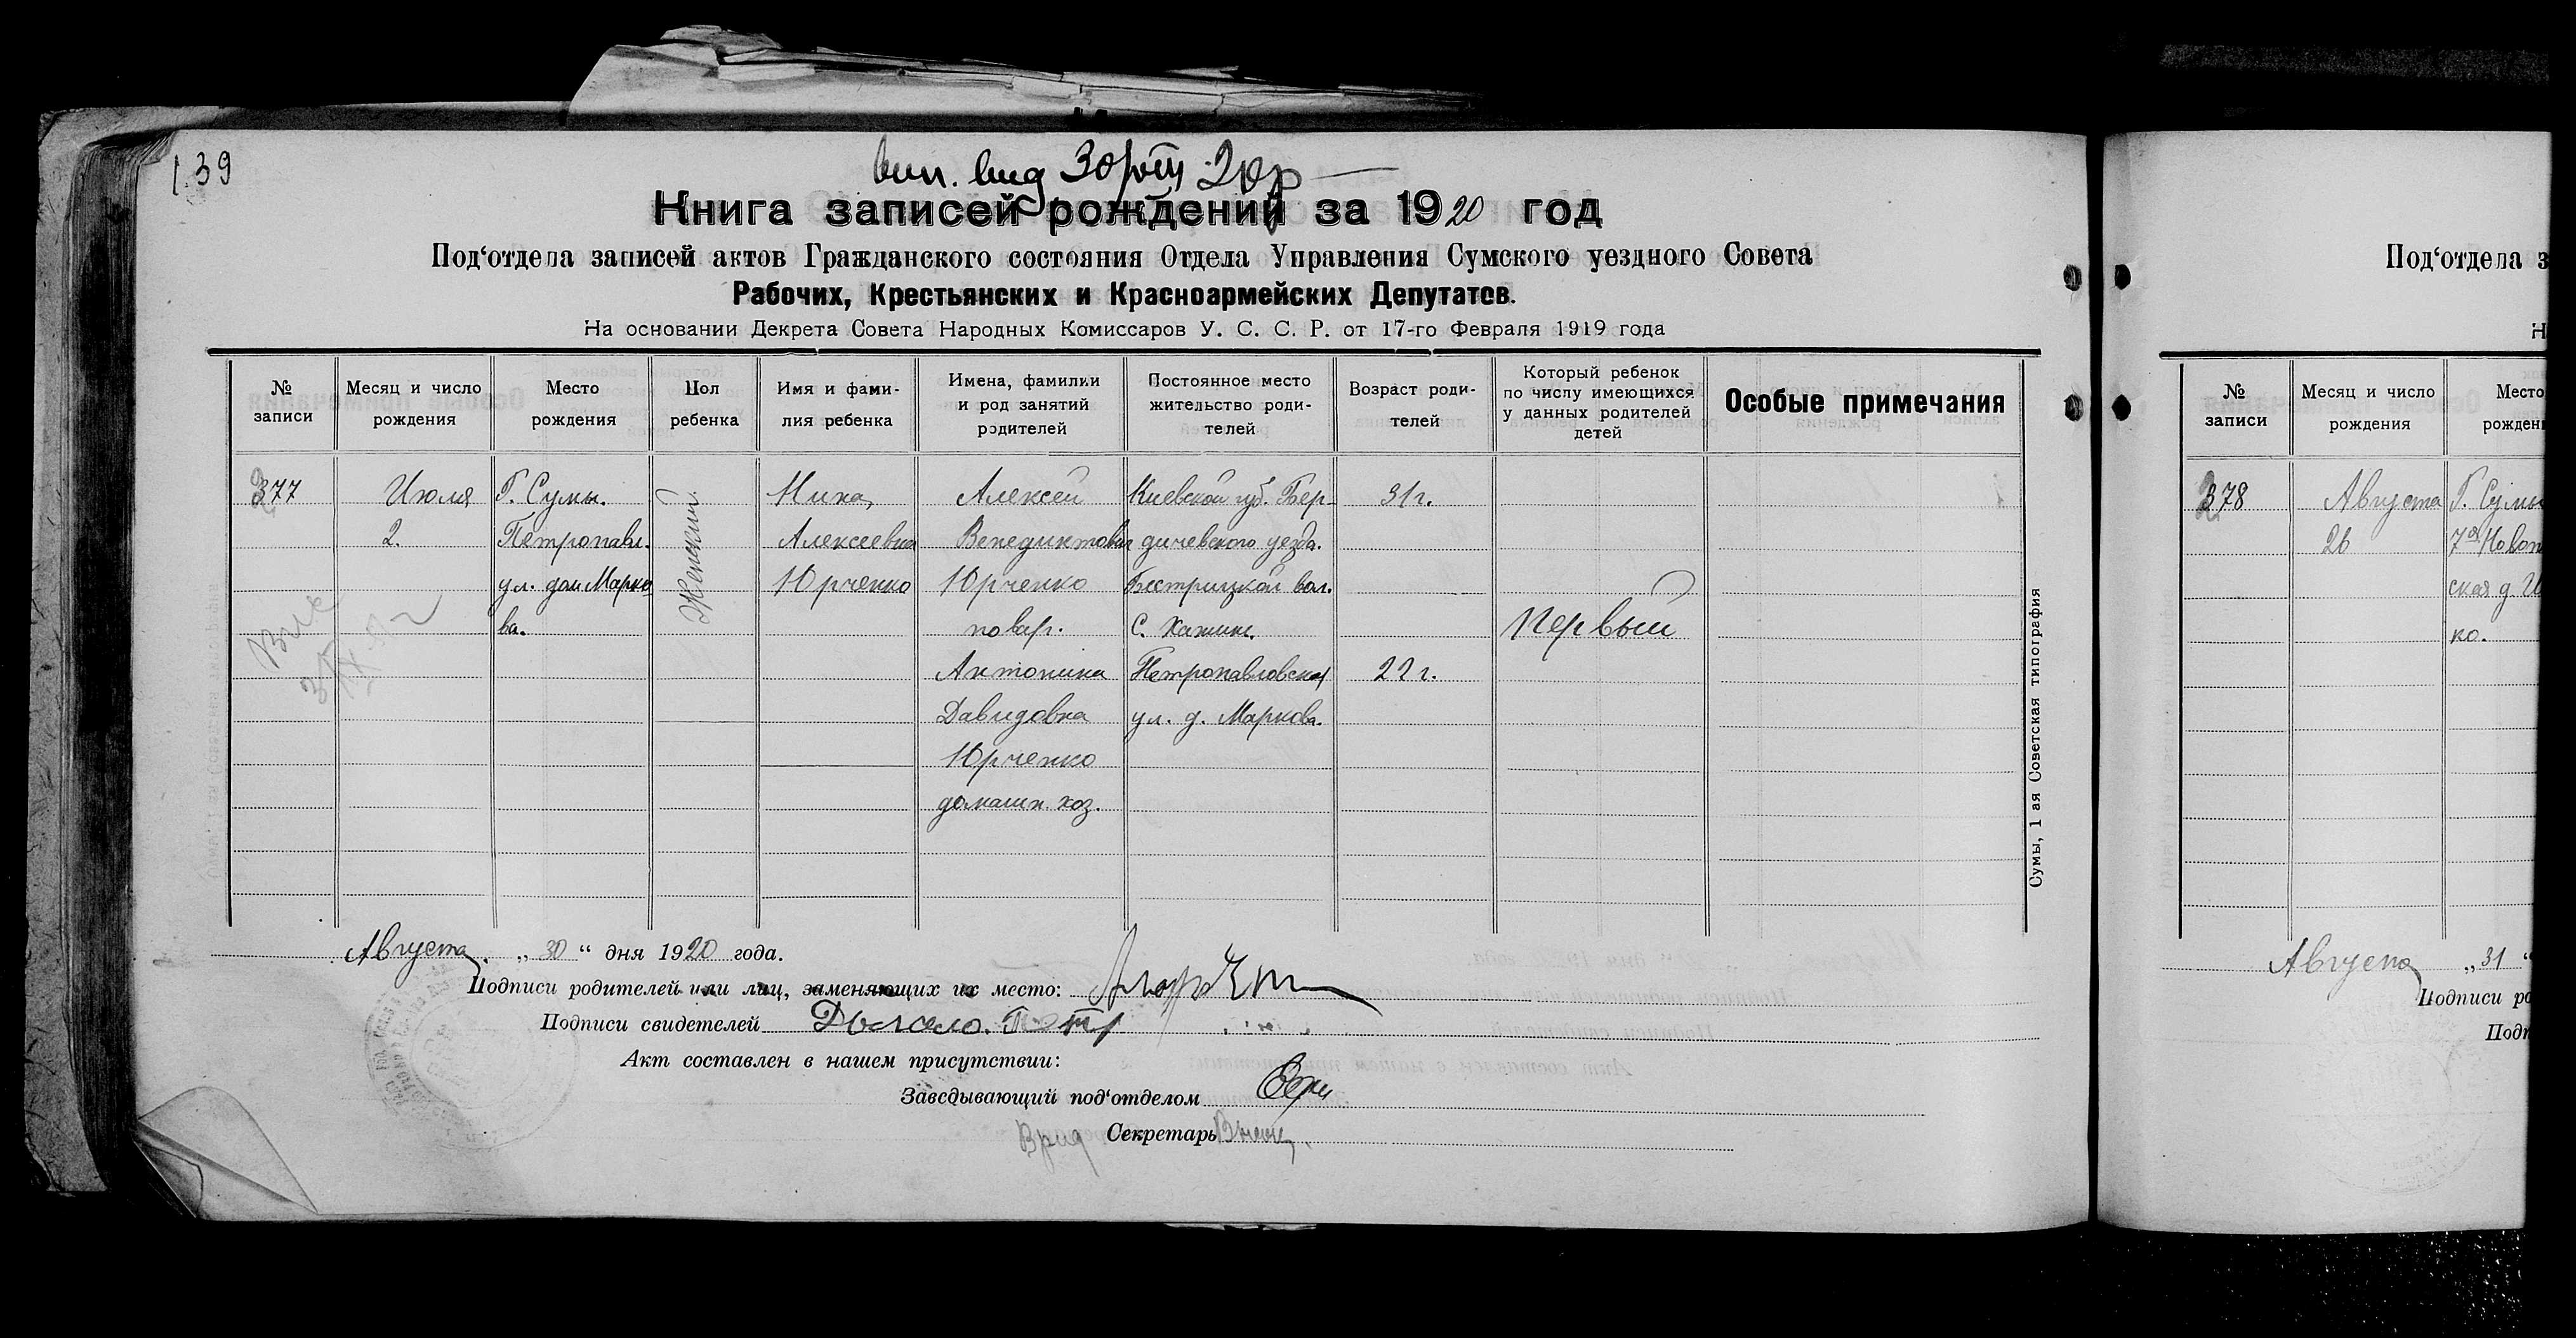 139
вип. вид
Книга записей рождений за 1920 год
Под‘отдела записей актов Гражданского состояния Отдела Управления Сумского уездного Совета
Рабочих, Крестьянских и Красноармейских Депутатов.
На основании Декрета Совета Народных Комиссаров У. С. С. Р. от 17-го Февраля 1919 года
№ записи
Месяц и число рождения
Место рождения
Пол ребенка
Имя и фами-
лия ребенка
Имена, фамилии
и род занятий
родителей
Постоянное место
жительство роди-
телей
Возраст роди-
телей
Который ребенок
по числу имеющихся
у данных родителей
детей
Особые примечания
377
Июля
2.
Г. Сумы.
Петропавл.
ул. дом Марко
ва.
Женский
Нина,
Алексеевна
Юрченко
Алексей
Венедиктович
Юрченко
повар.
Антонина
Давидовна
Юрченко
домашн. хоз.
Киевской губ. Бер-
дичевского уезда.
Бистрицкой вол.
С. Хажин.
Петропавловская
ул. д. Маркова.
31 г.
22 г.
Первый
Сумы, 1 ая Советская типография
Августа „ 30 “ дня 1920 года.
Подписи родителей или лиц, заменяющих их место:
Подписи свидетелей Петр
Акт составлен в нашем присутствии:
Заведывающий под‘отделом
Врид Секретарь
Под‘отдела з
Н
№ записи
Месяц и число рождения
Место
рожден
378
Августа
26
Г. Сумы
7ая Новоп
ская д.
ко.
Августа „ 31 “
Подписи ро
Подп